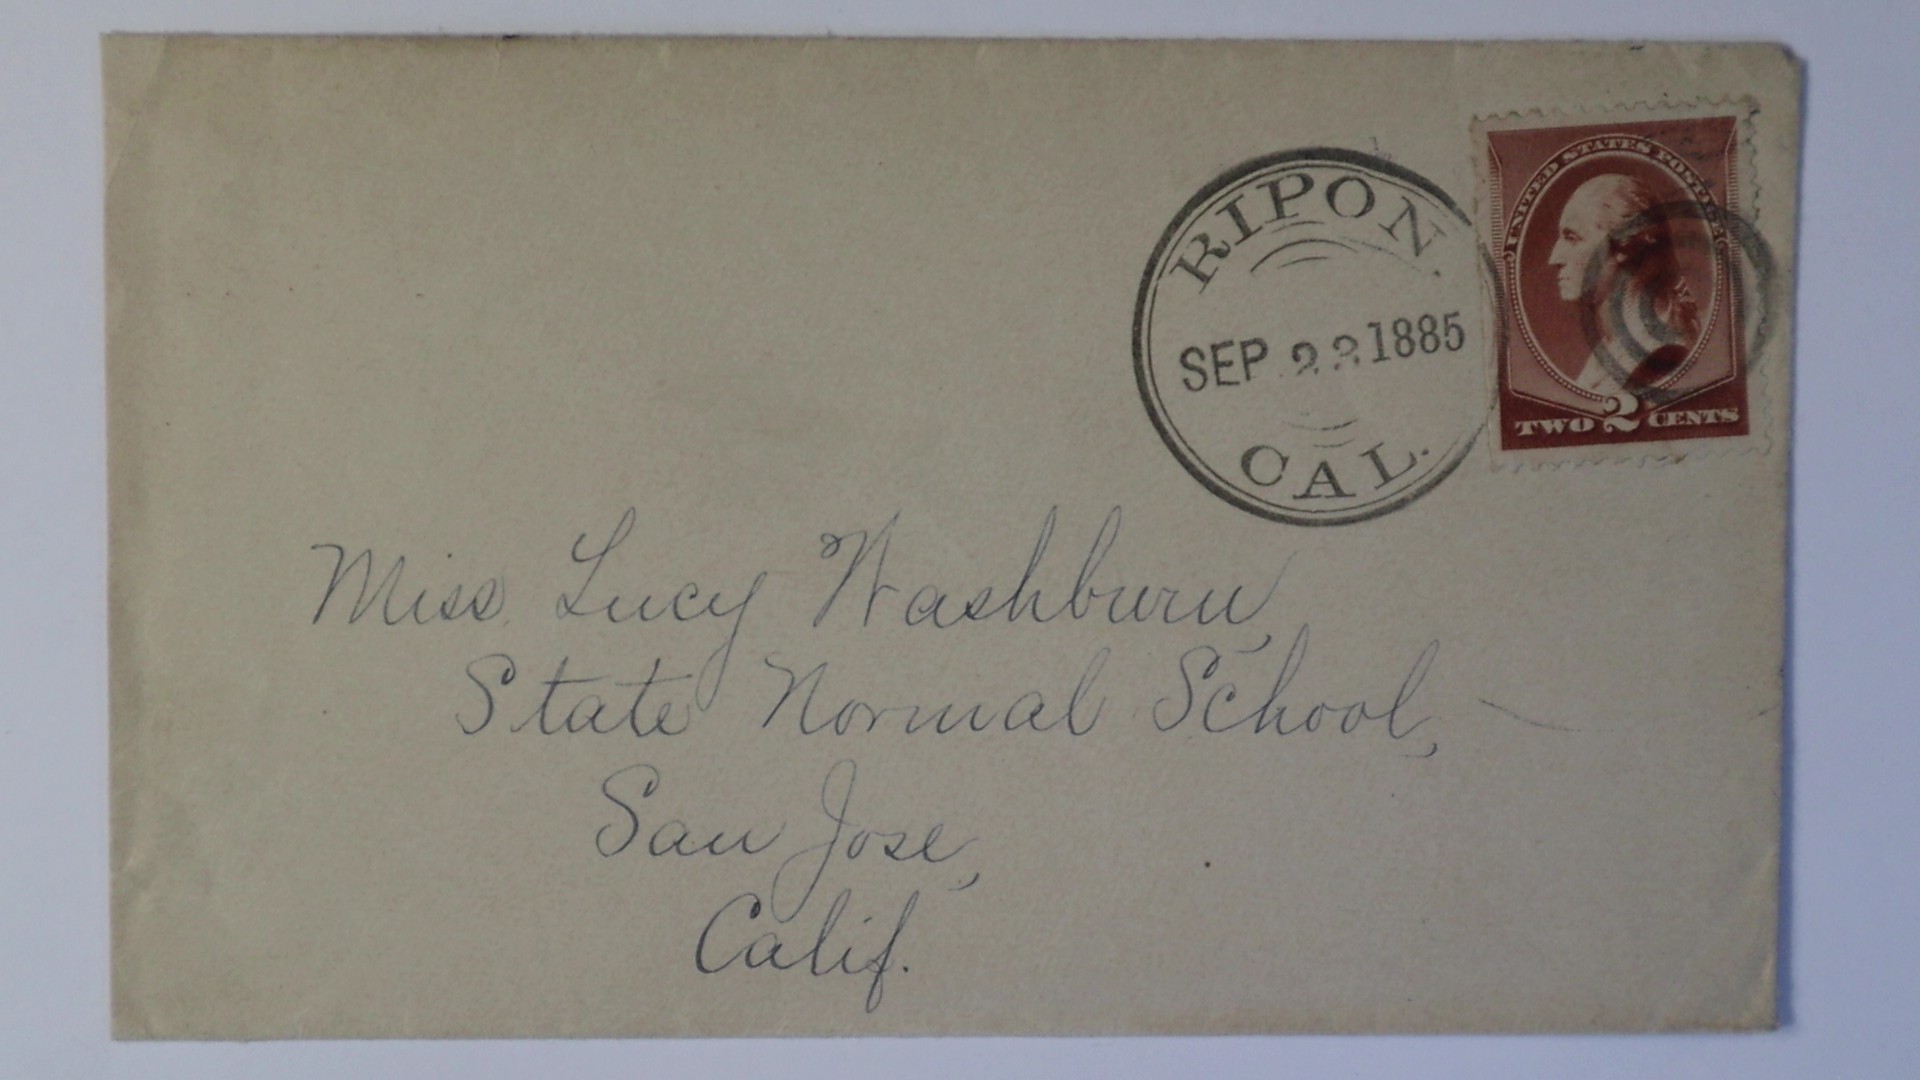 RIPON.
SEP 1885
CAL.
UNITED STATES POSTAGE
TWO 2 CENTS
Miss Lucy Washburn,
State Normal School,
San Jose,
Calif.